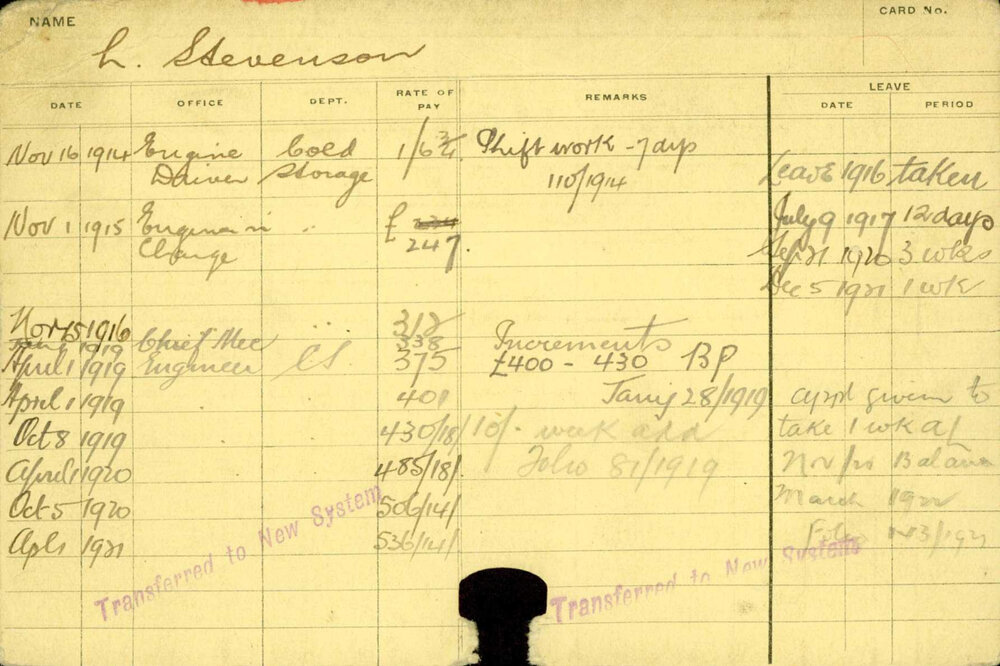 NAME
CARD No.
L. Stevenson
DATE OFFICE DEPT. RATE OF PAY REMARKS LEAVE
DATE PERIOD
Nov 16 1914 Engine Cold 1/6¾ Shift work - 7 days
Driver Storage 110/1914
Leave 1916 taken
Nov 1 1915 Engine in £
Charge 247
July 9 1917 12 days
Sep 21 1920 3 wks
Dec 5 1921 1 wk
Nov 15 1916 312
Jan 1 1919 Chief Mec 338 Increments
April 1 1919 Engineer CS 375 £400 - 430 BP
April 1 1919 401 28/1919 given to
Oct 8 1919 430/18/ 10/- week add take 1 wk
April 1 1920 485/18/ Folio 81/1919 Nov Balance
Oct 5 1920 506/14/ March
Apl 1 1921 536/14/
Transferred to New System
Transferred to New System